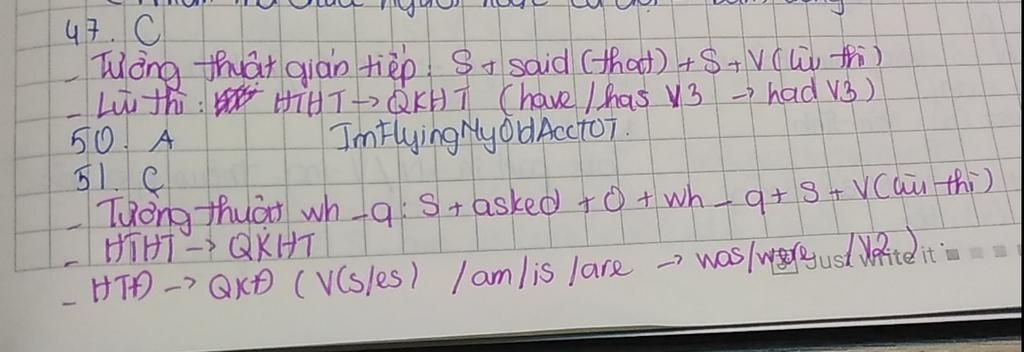 47. C
- Tường thuật gián tiếp: S + said (that) + S + V (lùi thì)
- Lùi thì: HTHT → QKHT (have/has V3 → had V3)
50. A ImFlyingMyOldAccTOT.
51. C
- Tường thuật wh-q: S + asked + O + wh-q + S + V (lùi thì)
- HTHT → QKHT
- HTĐ → QKĐ (V(s/es) /am/is/are → was/were/V2)
Just Write it